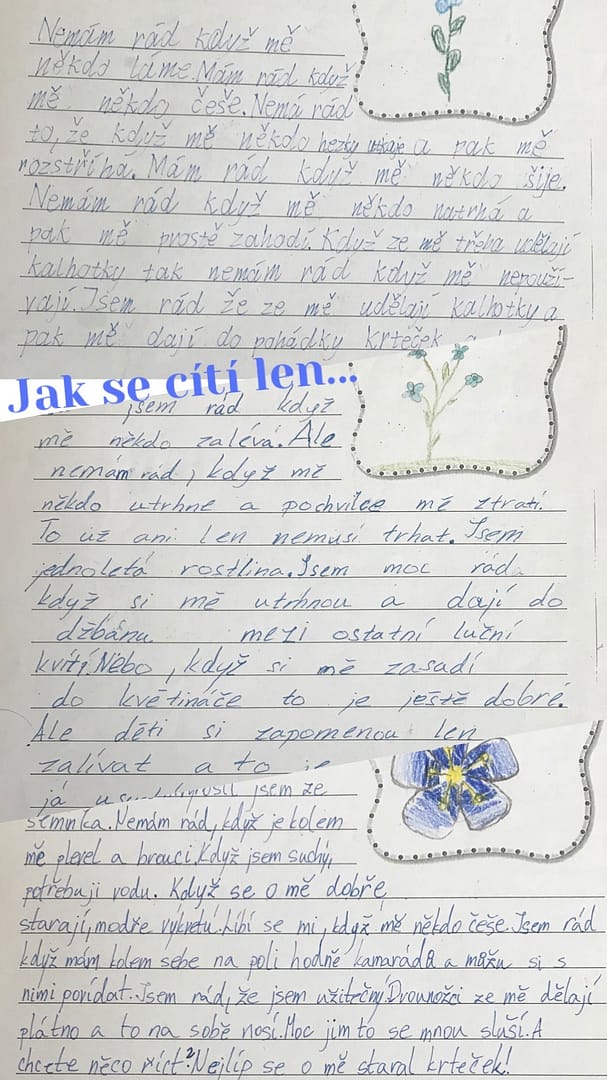 Nemám rád když mě
někdo láme. Mám rád když
mě někdo češe. Nemá rád
to, že když mě někdo hezky utkaje a pak mě
rozstříhá. Mám rád když mě někdo šije.
Nemám rád když mě někdo natrhá a
pak mě prostě zahodí. Když ze mě třeba udělají
kalhotky tak nemám rád když mě nepouží-
vají. Jsem rád že ze mě udělají kalhotky a
pak mě dají do pohádky krteček
Jak se cítí len...
jsem rád když
mě někdo zalévá. Ale
nemám rád, když mě
někdo utrhne a pochvilce mě ztratí.
To už ani len nemusí trhat. Jsem
jednoletá rostlina. Jsem moc ráda
když si mě utrhnou a dají do
džbánu mezi ostatní luční
kvítí. Nebo, když si mě zasadí
do květináče to je ještě dobré.
Ale děti si zapomenou len
zalívat a to je
já jsem ze
semínka. Nemám rád, když je kolem
mě plevel a brouci. Když jsem suchý,
potřebuji vodu. Když se o mě dobře
starají, modře vykvetu. Líbí se mi, když mě někdo češe. Jsem rád
když mám kolem sebe na poli hodně kamarádů a můžu si s
nimi povídat. Jsem rád, že jsem užitečný. Dvounožci ze mě dělají
plátno a to na sobě nosí. Moc jim to se mnou sluší. A
chcete něco říct? Nejlíp se o mě staral krteček!